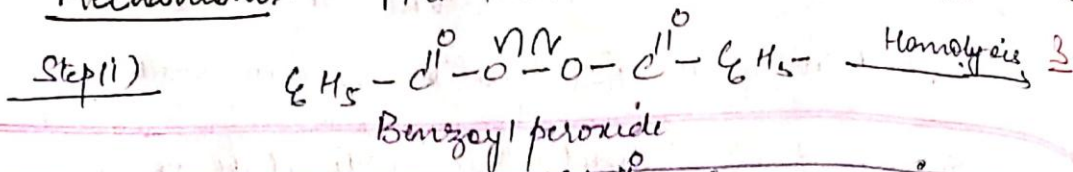 Step(i) C6H5 - C(=O) - O - O - C(=O) - C6H5 - Homolysis 3
Benzoyl peroxide